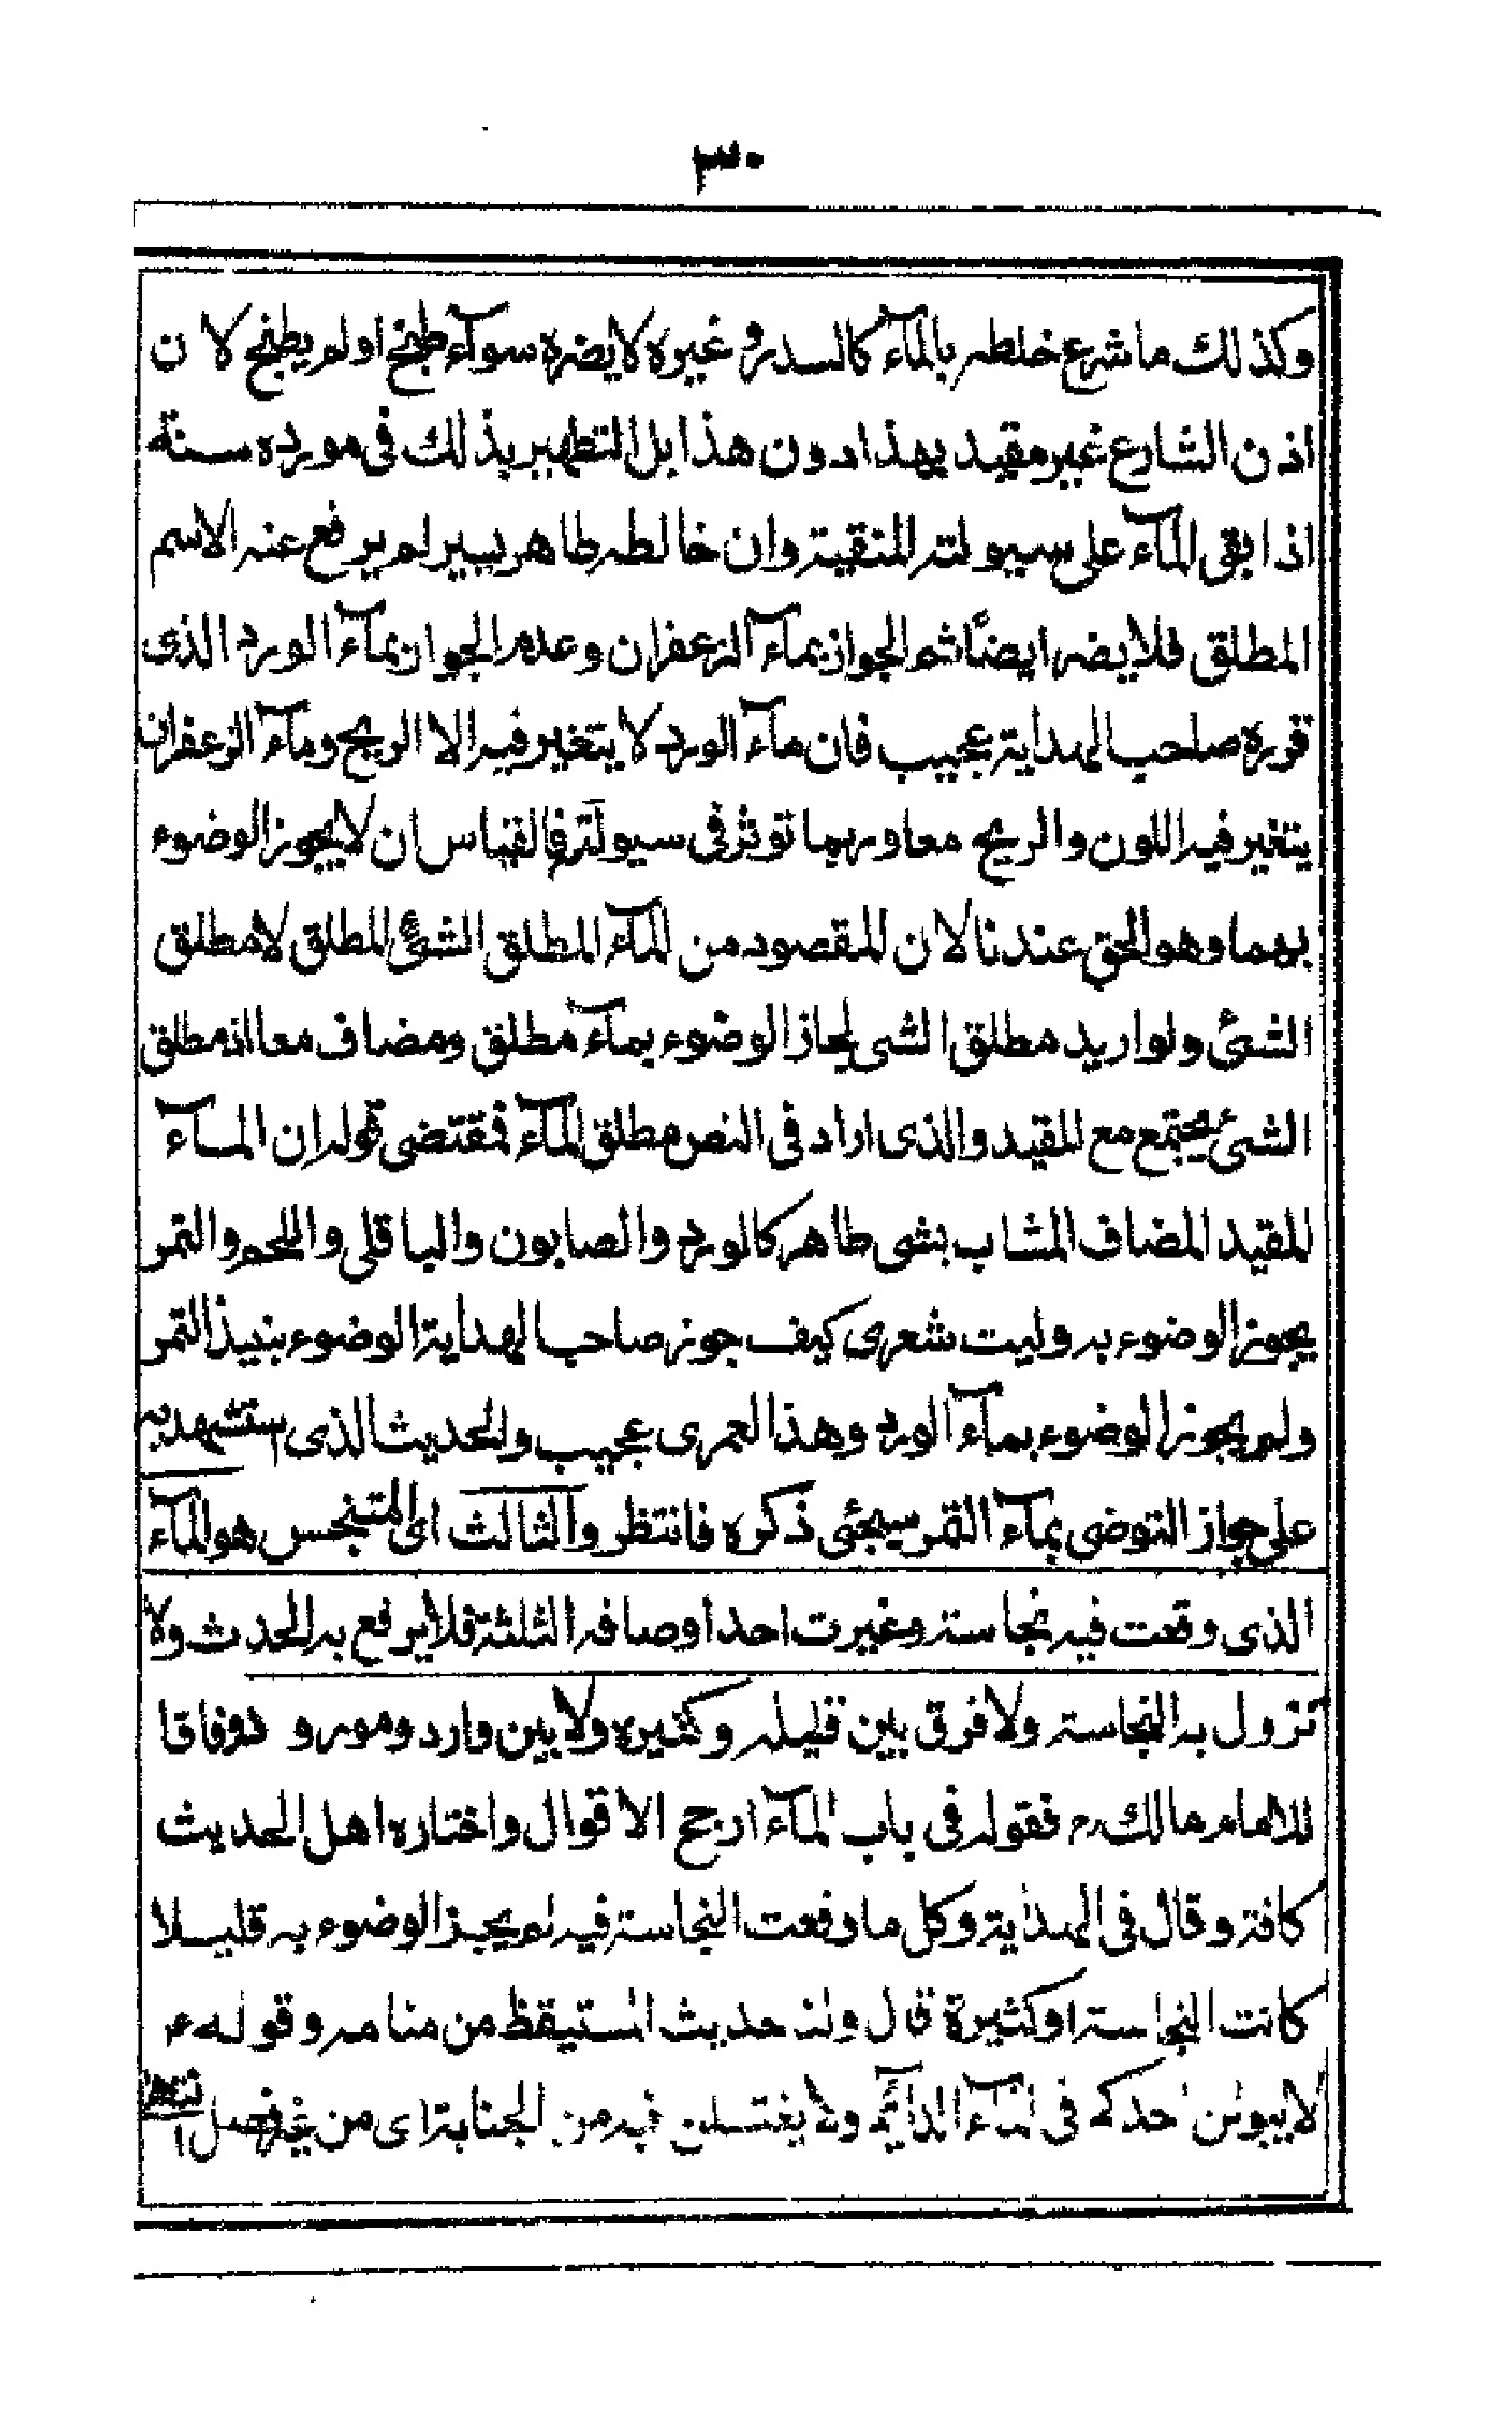 ٣٠
وكذلك ما شرع خلطه بالمآء كالسدر وغيره لا يضره سوآء طبخ او لم يطبخ لان
اذن الشارع غير مقيد بهذا دون هذا بل التطهير بذلك فى مورده سنة
اذا بقى المآء على سيولته المنقية وان خالطه طاهر يسير لم يرفع عنه الاسم
المطلق فلا يضر ايضًا ثم الجواز بمآء الزعفران وعدم الجواز بمآء الورد الذى
قرره صاحب الهداية عجيب فان مآء الورد لا يتغير فيه الا الريح ومآء الزعفران
يتغير فيه اللون والريح معا وربما تؤثر فى سيولته فالقياس ان لا يجوز الوضوء
بهما وهو الحق عندنا لان المقصود من المآء المطلق الشئ المطلق لا مطلق
الشئ ولو اريد مطلق الشى لجاز الوضوء بمآء مطلق ومضاف معا لانه مطلق
الشئ يجتمع مع المقيد والذى اراد فى النص مطلق المآء فمقتضى قوله ان المآء
المقيد المضاف المشاب بشى طاهر كالورد والصابون والباقلى واللحم والتمر
يجوز الوضوء به وليت شعرى كيف جوز صاحب الهداية الوضوء بنبيذ التمر
ولم يجوز الوضوء بمآء الورد وهذا لعمرى عجيب والحديث الذى استشهد به
على جواز التوضى بمآء التمر سيجئى ذكره فانتظر والثالث اى المتنجس هو المآء
الذى وقعت فيه نجاسة وغيرت احد اوصافه الثلثة فلا يرفع به الحدث ولا
تزول به النجاسة ولا فرق بين قليله وكثيره ولا بين وارد ومورود وفاقا
للامام مالك رح فقوله فى باب المآء ارجح الاقوال واختاره اهل الحديث
كافة وقال فى الهداية وكل ما وقعت النجاسة فيه لم يجز الوضوء به قليلا
كانت النجاسة او كثيرة قال ولنا حديث المستيقظ من منامه وقوله ع
لا يبولن احدكم فى المآء الدآئم ولا يغتسلن فيه من الجنابة اى من غير فصل انتهى